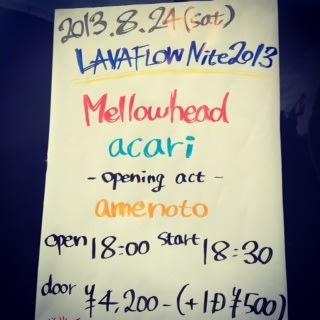 2013.8.24(sat)
LAVAFLOW Nite2013
Mellowhead
acari
- opening act -
amenoto
open 18:00 start 18:30
door ¥4,200-(+1D ¥500)